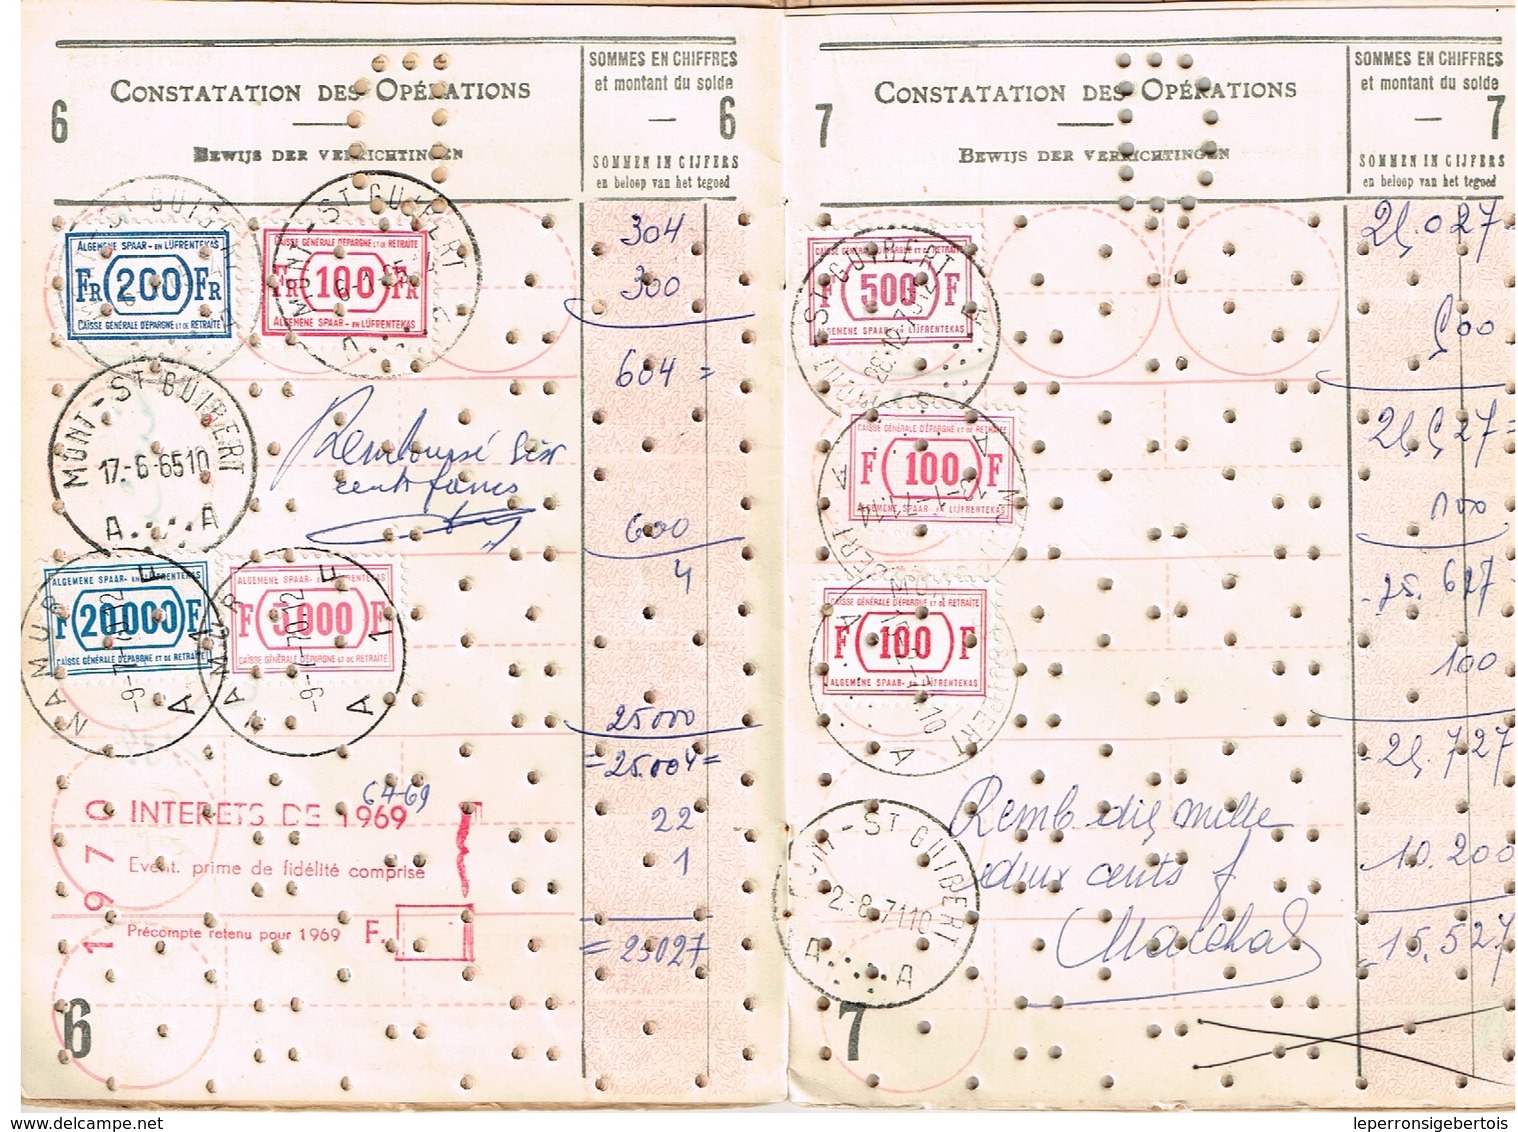 CONSTATATION DES OPÉRATIONS
BEWIJS DER VERRICHTINGEN
6
SOMMES EN CHIFFRES
et montant du solde
— 6
SOMMEN IN CIJFERS
en beloop van het tegoed
ALGEMENE SPAAR- EN LIJFRENTEKAS
FR 200 FR
CAISSE GÉNÉRALE D'ÉPARGNE ET DE RETRAITE
CAISSE GÉNÉRALE D'ÉPARGNE ET DE RETRAITE
FR 100 FR
ALGEMENE SPAAR- EN LIJFRENTEKAS
MONT-ST GUIBERT
304
300
604 =
MONT-ST GUIBERT
17-6-65 10
A A
Remboursé six
cents francs
600
4
ALGEMENE SPAAR- EN LIJFRENTEKAS
F 20.000 F
CAISSE GÉNÉRALE D'ÉPARGNE ET DE RETRAITE
ALGEMENE SPAAR- EN LIJFRENTEKAS
F 5.000 F
CAISSE GÉNÉRALE D'ÉPARGNE ET DE RETRAITE
NAMUR
-9-7-70 12
A
NAMUR
-9-7-70 12
A
25000
= 25.004 =
1970
INTERETS DE 1969
64-69
22
Event. prime de fidélité comprise
1
Précompte retenu pour 1969 F.
= 25027
6
CONSTATATION DES OPÉRATIONS
BEWIJS DER VERRICHTINGEN
7
SOMMES EN CHIFFRES
et montant du solde
— 7
SOMMEN IN CIJFERS
en beloop van het tegoed
25.027
CAISSE GÉNÉRALE D'ÉPARGNE ET DE RETRAITE
F 500 F
ALGEMENE SPAAR- EN LIJFRENTEKAS
MONT-ST GUIBERT
500
25527 =
CAISSE GÉNÉRALE D'ÉPARGNE ET DE RETRAITE
F 100 F
ALGEMENE SPAAR- EN LIJFRENTEKAS
100
25.627
CAISSE GÉNÉRALE D'ÉPARGNE ET DE RETRAITE
F 100 F
ALGEMENE SPAAR- EN LIJFRENTEKAS
100
25.727
MONT-ST GUIBERT
2-8-71 10
A A
Remb. dix mille
deux cents f
10.200
Marchal
15.527
7
www.delcampe.net
leperronsigebertois